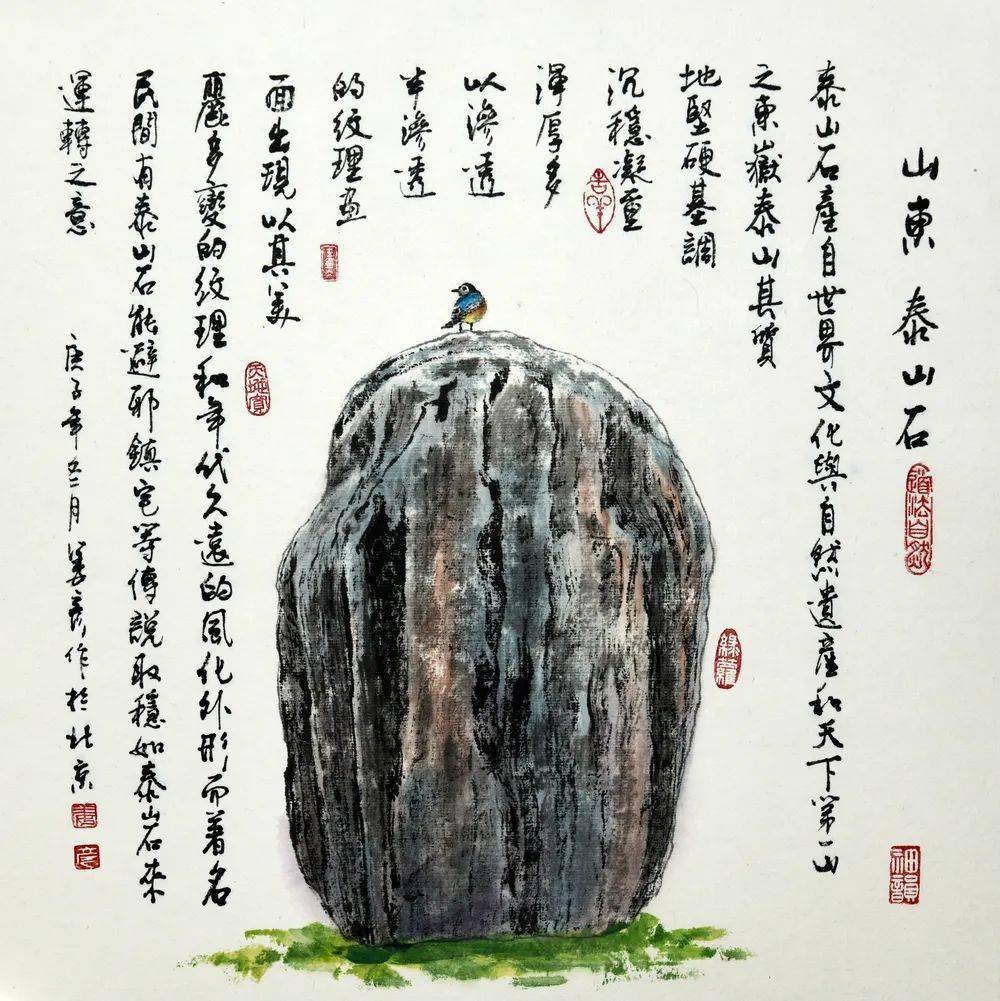 山東 泰山石
道法自然
泰山石產自世界文化與自然遺產和天下第一山
之東嶽泰山其質
地堅硬基調
沉穩凝重
渾厚多
以滲透
半滲透
的紋理畫
面出現以其美
麗多變的紋理和年代久遠的風化外形而著名
民間有泰山石能避邪鎮宅等傳說取穩如泰山石來
運轉之意
庚子年 月 作於北京
綠蘿